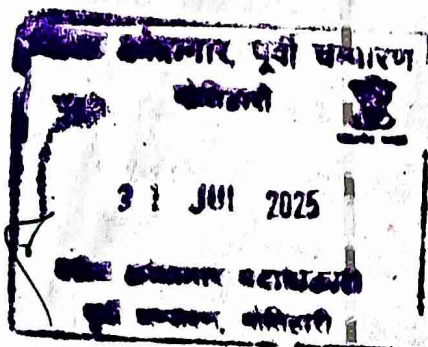 कोषागार, पूर्वी चम्पारण
मोतिहारी
31 JUL 2025
कोषागार पदाधिकारी
पूर्वी चम्पारण, मोतिहारी